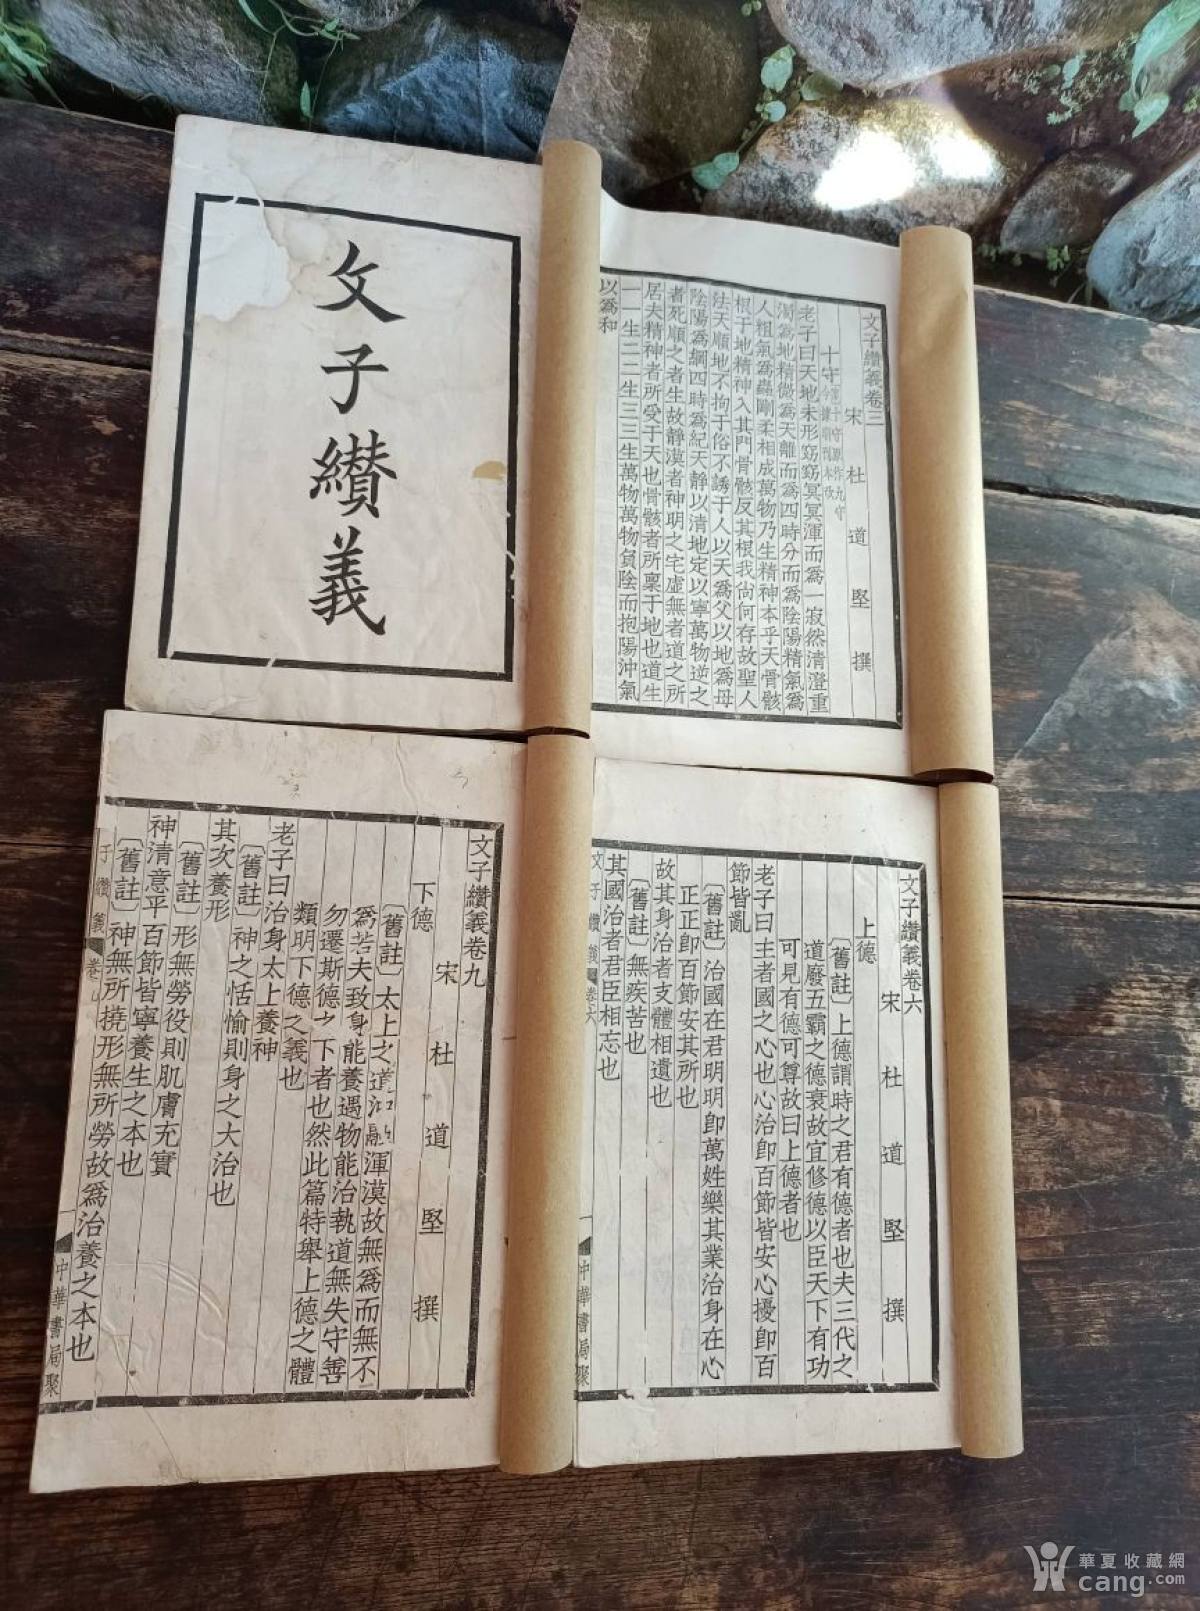 文子纘義
文子纘義卷三
宋杜道堅撰
十守
老子曰天地未形窈窈冥冥渾而爲一寂然清澄重
濁爲地精微爲天離而爲四時分而爲陰陽精氣爲
人粗氣爲蟲剛柔相成萬物乃生精神本乎天骨骸
根于地精神入其門骨骸反其根我尚何存故聖人
法天順地不拘于俗不誘于人以天爲父以地爲母
陰陽爲綱四時爲紀天静以清地定以寧萬物逆之
者死順之者生故静漠者神明之宅虛無者道之所
居夫精神者所受于天也骨骸者所稟于地也道生
一一生二二生三三生萬物萬物負陰而抱陽沖氣
以爲和
文子纘義卷九
宋杜道堅撰
下德
〔舊註〕太上之道渾漠故無爲而無不
爲若夫致身能養遇物能治執道無失守善
勿遷斯德之下者也然此篇特舉上德之體
類明下德之義也
老子曰治身太上養神
〔舊註〕神之恬愉則身之大治也
其次養形
〔舊註〕形無勞役則肌膚充實
神清意平百節皆寧養生之本也
〔舊註〕神無所撓形無所勞故爲治養之本也
子纘義 卷九 一 中華書局聚
文子纘義卷六
宋杜道堅撰
上德
〔舊註〕上德謂時之君有德者也夫三代之
道廢五霸之德衰故宜修德以臣天下有功
可見有德可尊故曰上德者也
老子曰主者國之心也心治卽百節皆安心擾卽百
節皆亂
〔舊註〕治國在君明明卽萬姓樂其業治身在心
正正卽百節安其所也
故其身治者支體相遺也
〔舊註〕無疾苦也
其國治者君臣相忘也
文子纘義 卷六 一 中華書局聚
華夏收藏網
cang.com